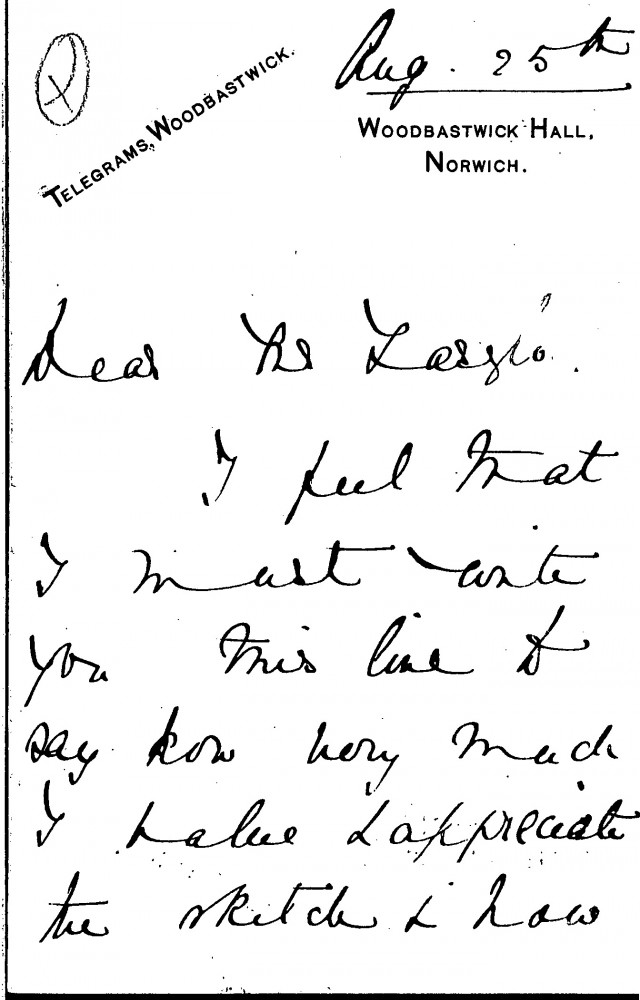 Aug. 25th
TELEGRAMS, WOODBASTWICK.
WOODBASTWICK HALL,
NORWICH.
Dear Mr László.
I feel that
I must write
you this line to
say how very much
I value & appreciate
the sketch & how